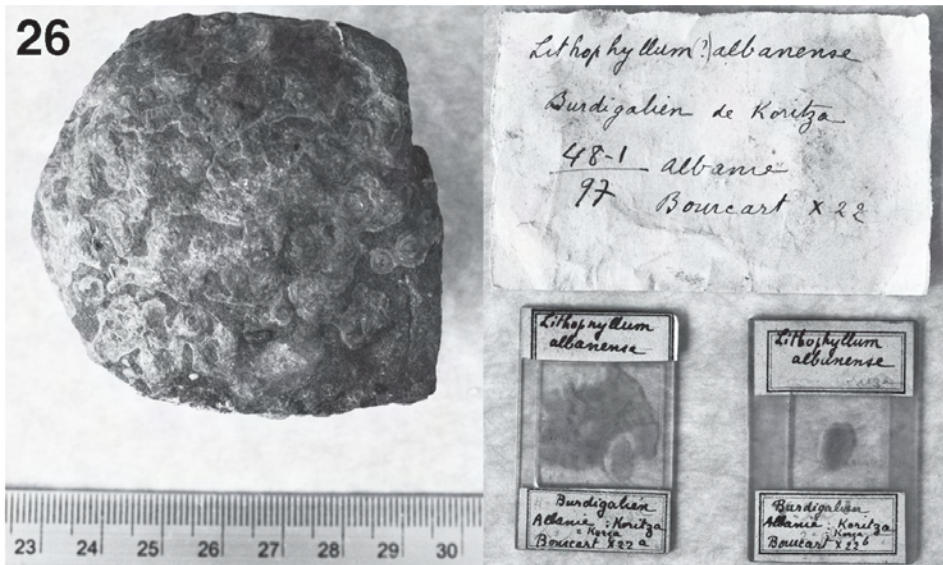 26
Lithophyllum(?) albanense
Burdigalien de Koritza
48-1 Albanie
97 Bourcart x 22
Lithophyllum
albanense
Burdigalien
Albanie : Koritza
= Korça
Bourcart x 22 a
Lithophyllum
albanense
Burdigalien
Albanie : Koritza
Bourcart x 22 b
23 24 25 26 27 28 29 30